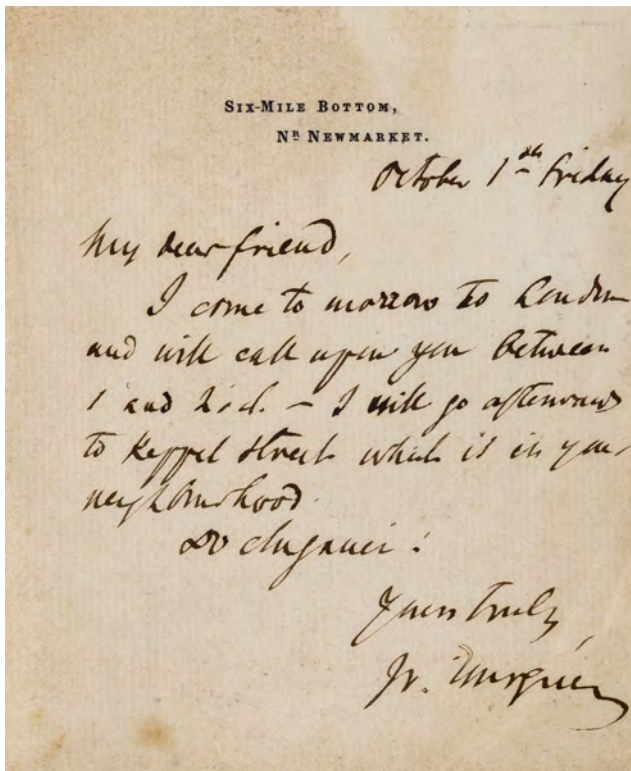 SIX-MILE BOTTOM,
NR NEWMARKET.
October 1th Friday
My dear friend,
I come to morrow to London
and will call upon you between
1 and 2 o'cl. – I will go afterwards
to Keppel Street which is in your
neighbourhood.
До свиданiя!
Yours truly,
Iv.